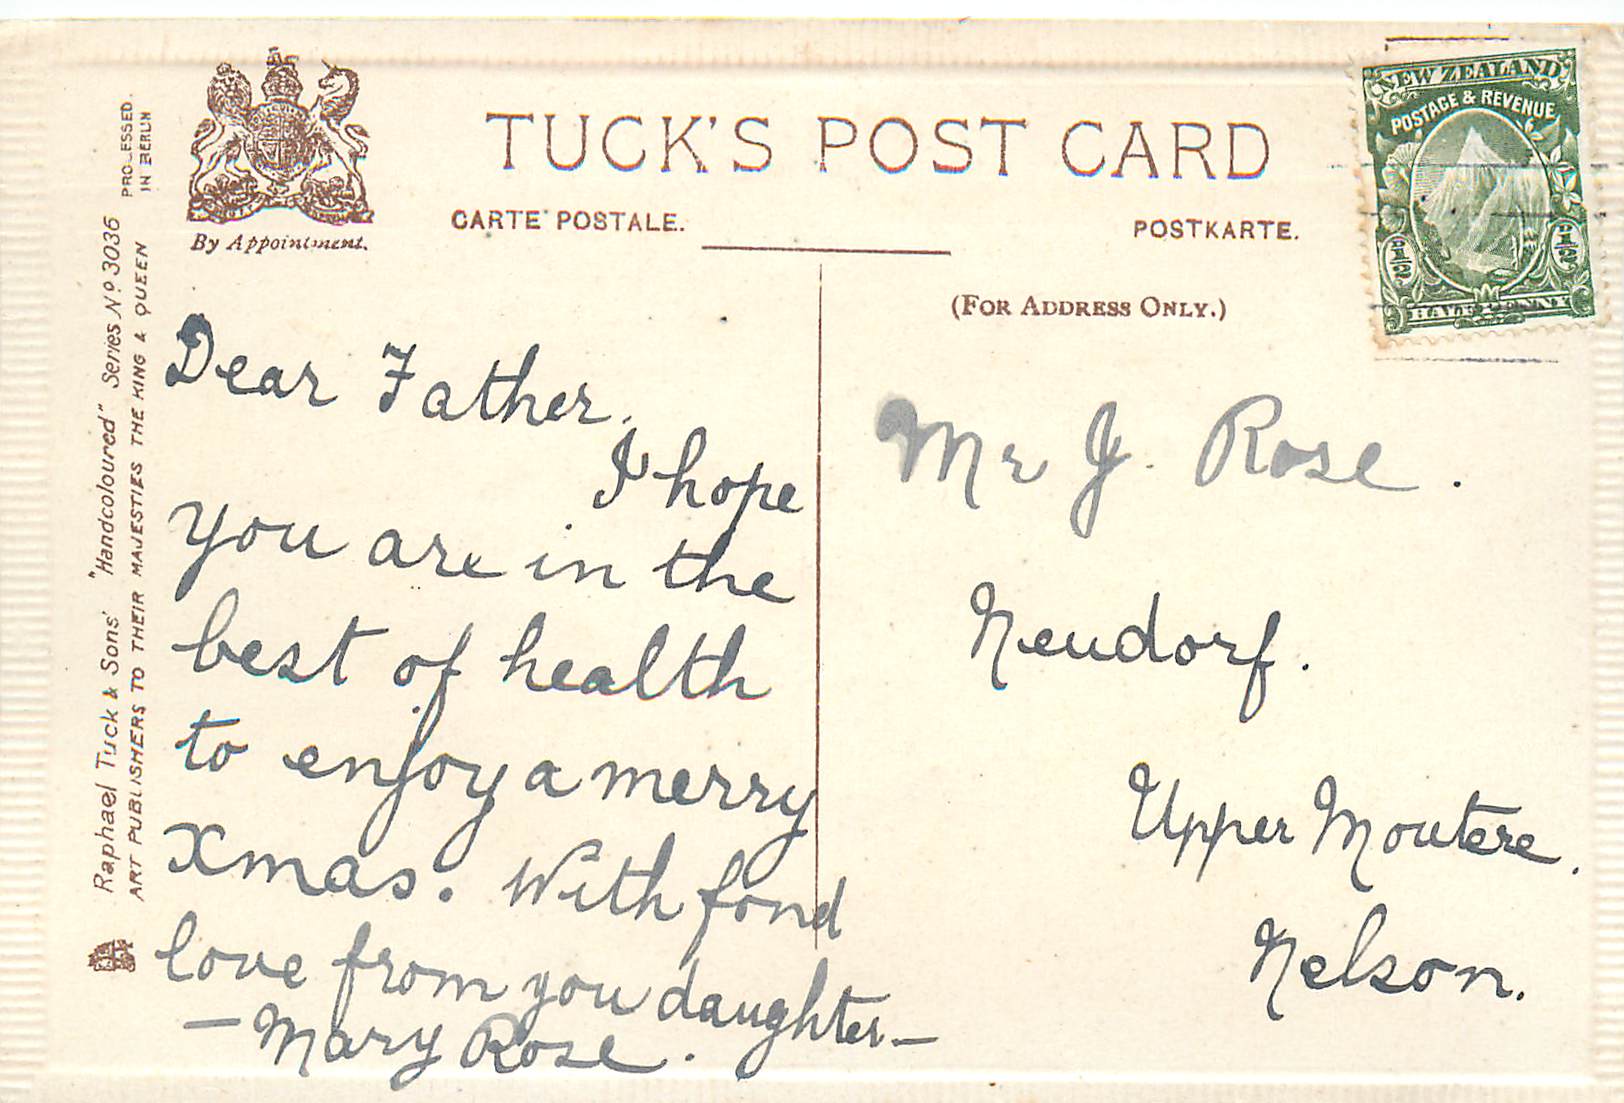 TUCK'S POST CARD
CARTE POSTALE.
POSTKARTE.
(FOR ADDRESS ONLY.)
By Appointment.
PROCESSED
IN BERLIN
Raphael Tuck & Sons' "Handcoloured" Series No. 3036
ART PUBLISHERS TO THEIR MAJESTIES THE KING & QUEEN
NEW ZEALAND
POSTAGE & REVENUE
1/2
1/2
HALF PENNY
Dear Father,
I hope
you are in the
best of health
to enjoy a merry
Xmas. With fond
love from you daughter—
— Mary Rose.
Mr J. Rose.
Neudorf.
Upper Moutere.
Nelson.